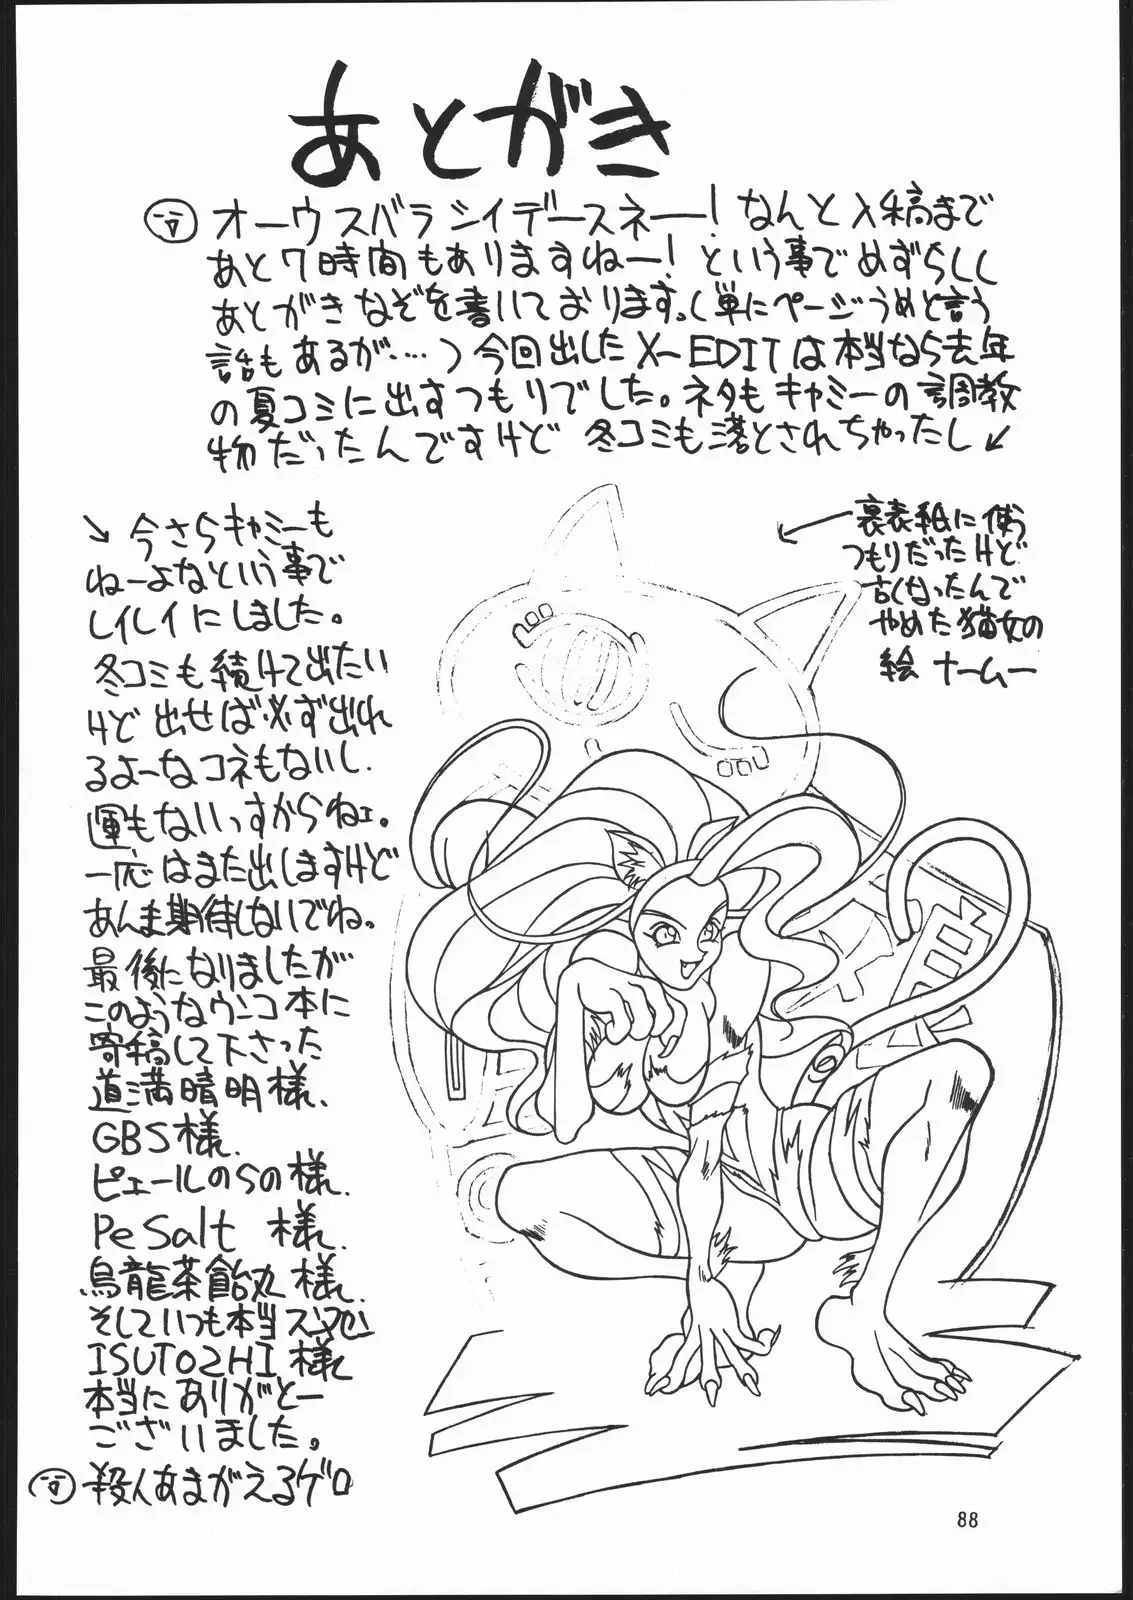 あとがき
オーウスバラシイデースネー！なんと入稿まで
あと7時間もありますねー！という事でめずらしく
あとがきなぞを書いております。（単にページうめと言う
話もあるが・・・・）今回出したX-EDITは本当なら去年
の夏コミに出すつもりでした。ネタもキャミーの調教
物だったんですけど冬コミも落とされちゃったし↙
↘今さらキャミーも
ねーよなという事で
レイレイにしました。
冬コミも続けて出たい
けど出せば必ず出れ
るよーなコネもないし、
運もないっすからねェ。
一応はまた出しますけど
あんま期待しないでね。
最後になりましたが
このようなウンコ本に
寄稿して下さった
道満晴明様、
GBS様、
ピエールのらの様、
Pe Salt 様、
烏龍茶飴丸様、
そしていつも本当スマヌ
ISUTOSHI様
本当にありがとー
ございました。
殺人あまがえるゲロ
←裏表紙に使う
つもりだったけど
古くなったんで
やめた猫女の
絵 ナームー
88